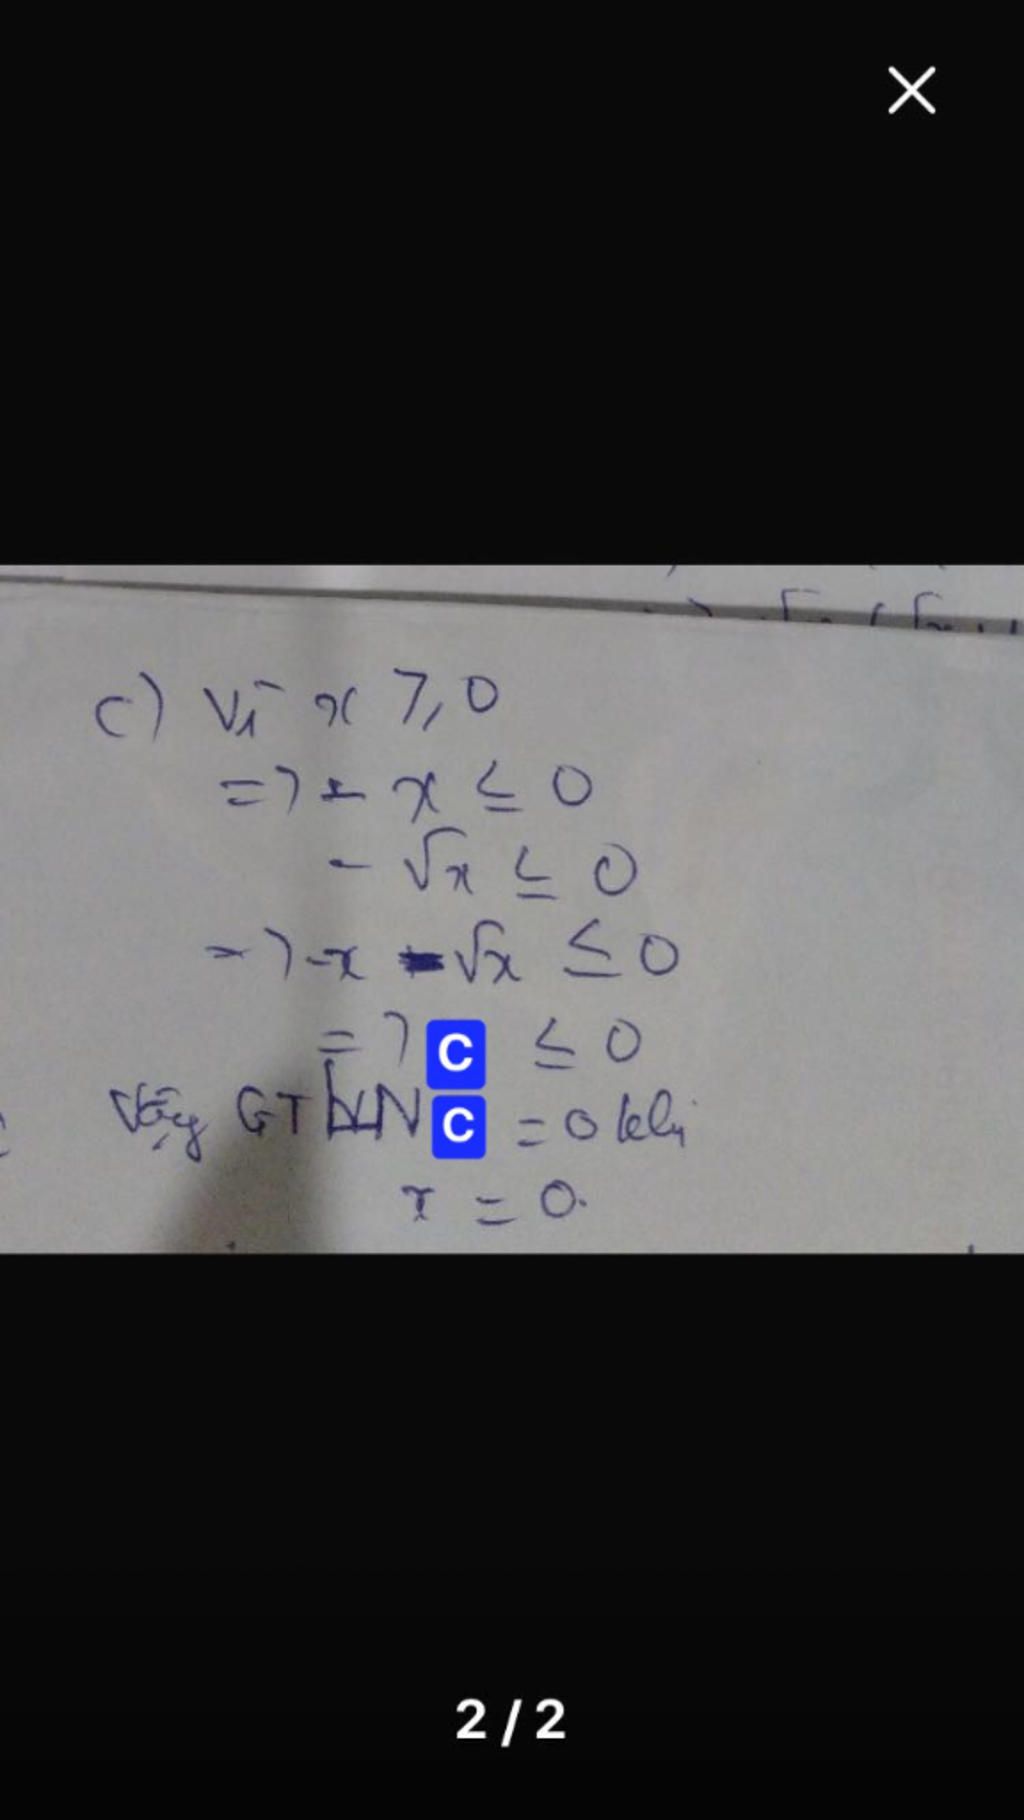 c) Vì x ⩾ 0
=> - x ≤ 0
- √x ≤ 0
=> -x - √x ≤ 0
=> C ≤ 0
Vậy GTLN C = 0 khi
x = 0.
2 / 2